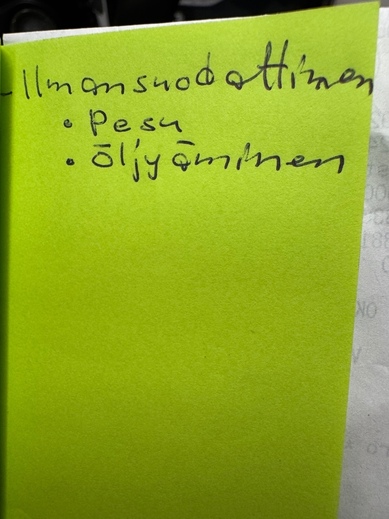 - Ilmansuodattimen
• Pesu
• Öljyäminen